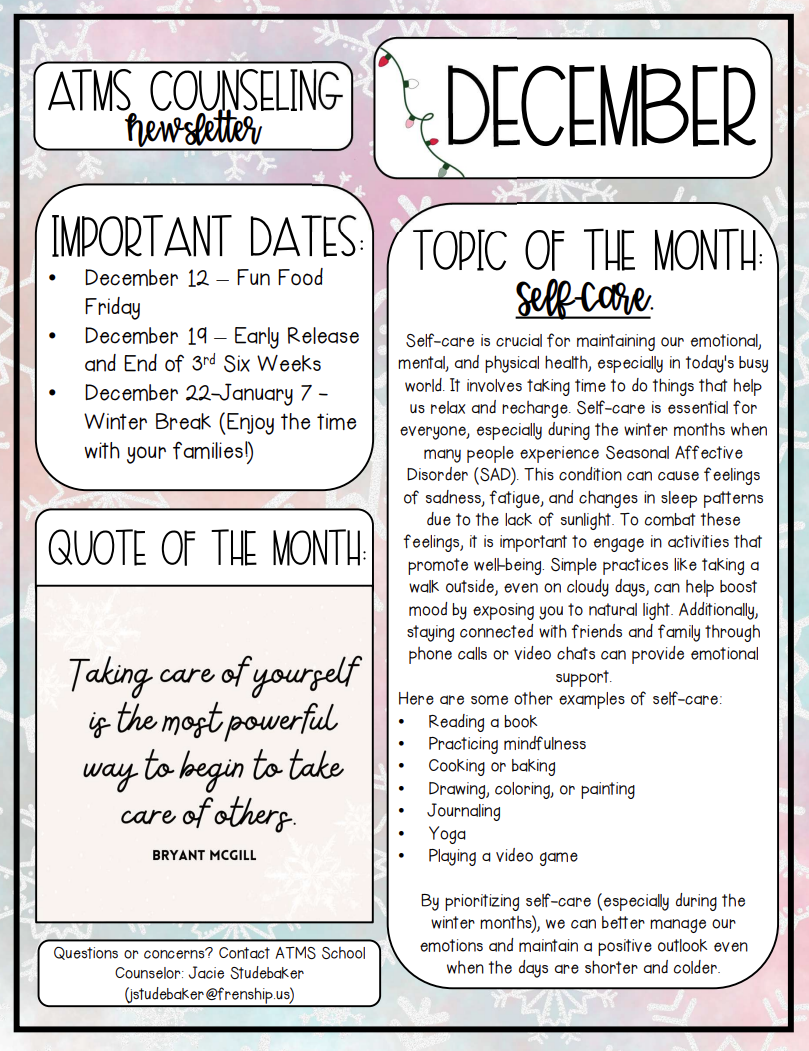 ATMS COUNSELING
newsletter
DECEMBER
IMPORTANT DATES:
• December 12 – Fun Food
Friday
• December 19 – Early Release
and End of 3rd Six Weeks
• December 22-January 7 -
Winter Break (Enjoy the time
with your families!)
QUOTE OF THE MONTH:
Taking care of yourself
is the most powerful
way to begin to take
care of others.
BRYANT MCGILL
Questions or concerns? Contact ATMS School
Counselor: Jacie Studebaker
(jstudebaker@frenship.us)
TOPIC OF THE MONTH:
Self-Care.
Self-care is crucial for maintaining our emotional,
mental, and physical health, especially in today's busy
world. It involves taking time to do things that help
us relax and recharge. Self-care is essential for
everyone, especially during the winter months when
many people experience Seasonal Affective
Disorder (SAD). This condition can cause feelings
of sadness, fatigue, and changes in sleep patterns
due to the lack of sunlight. To combat these
feelings, it is important to engage in activities that
promote well-being. Simple practices like taking a
walk outside, even on cloudy days, can help boost
mood by exposing you to natural light. Additionally,
staying connected with friends and family through
phone calls or video chats can provide emotional
support.
Here are some other examples of self-care:
• Reading a book
• Practicing mindfulness
• Cooking or baking
• Drawing, coloring, or painting
• Journaling
• Yoga
• Playing a video game
By prioritizing self-care (especially during the
winter months), we can better manage our
emotions and maintain a positive outlook even
when the days are shorter and colder.